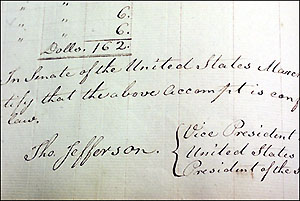 " " 6.
" " 6.
Dolls. 162.
In Senate of the United States
tify that the above accompt is
law.
Tho. Jefferson. { Vice President
United States
President of the